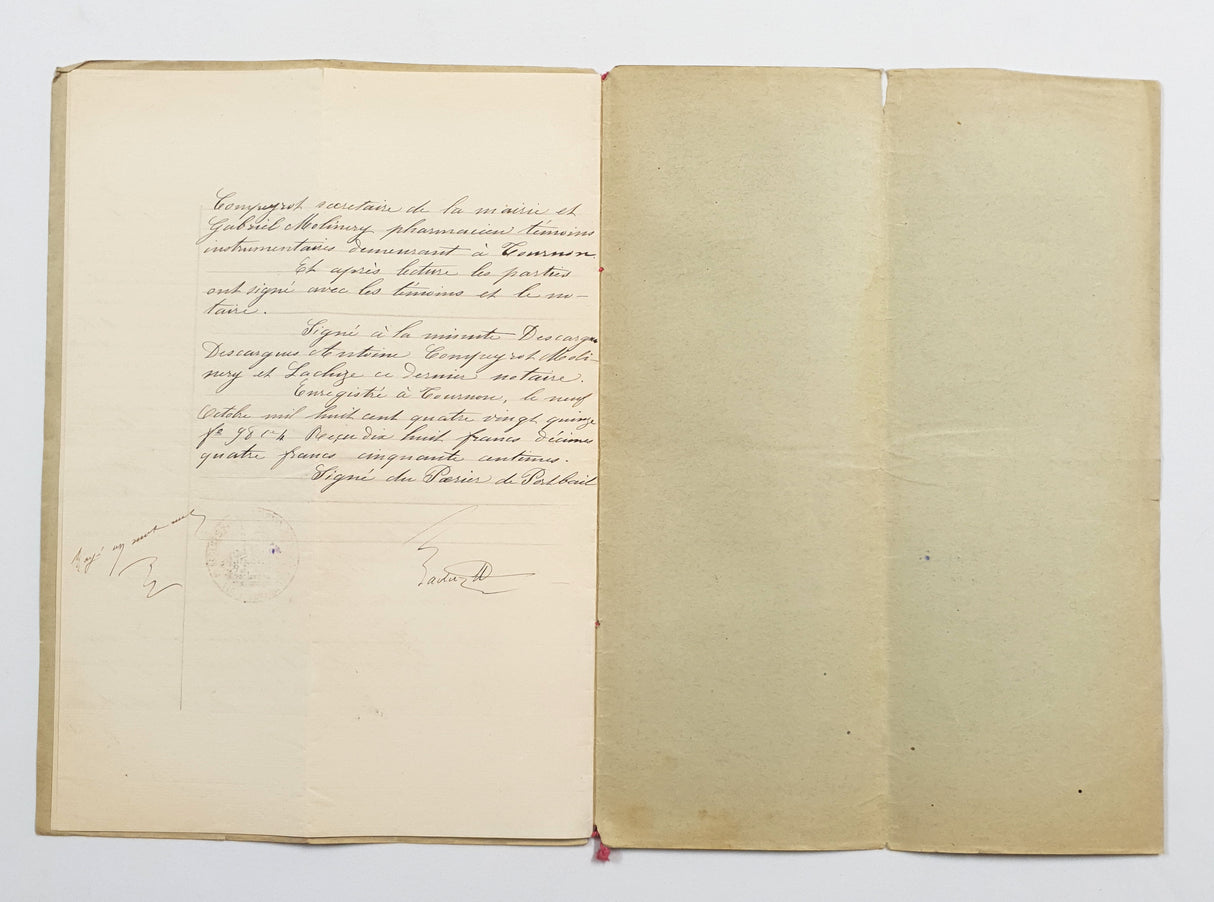 Compeyrot secretaire de la mairie et
Gabriel Molinery pharmacien témoins
instrumentaires demeurant à Tournon.
Et après lecture les parties
ont signé avec les témoins et le no-
taire.
Signé à la minute Descargues
Descargues Antoine Compeyrot Moli-
nery et Lacluze ce dernier notaire.
Enregistré à Tournon, le neuf
Octobre mil huit cent quatre vingt quinze
fo 98 Ce 4 Reçu dix huit francs décimes
quatre francs cinquante centimes.
Signé du Poerier de Portbail
Rayé un mot nul